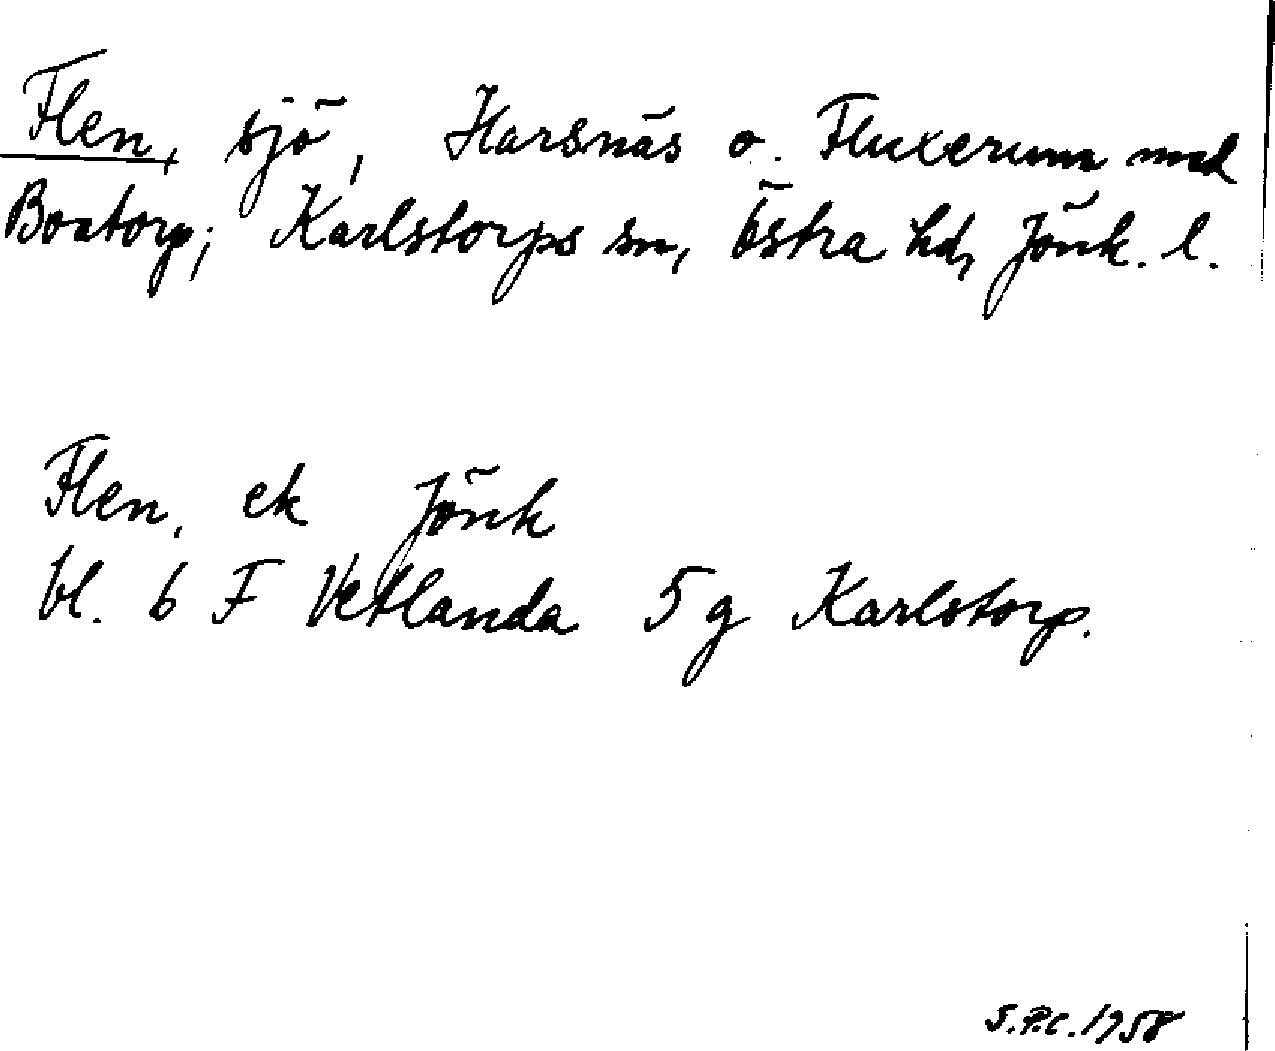 Flen, sjö, Harsnäs o. Fluxerum med
Boatorp; Karlstorps sn, Östra hd, Jönk. l.
Flen, ek Jönk
bl. 6 F Vetlanda 5 g Karlstorp.
S.P.C. 1958